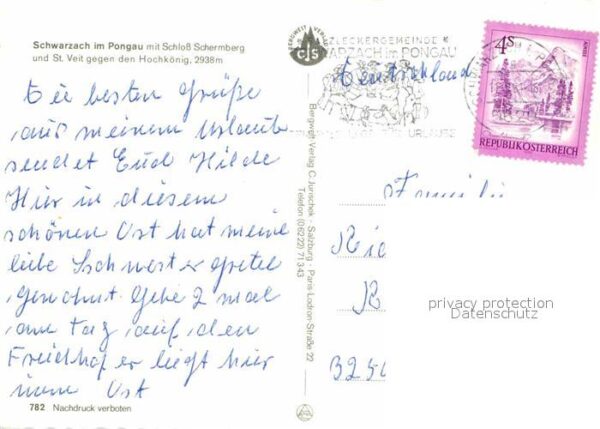 Schwarzach im Pongau mit Schloß Schermberg
und St. Veit gegen den Hochkönig, 2938m
Die besten Grüße
aus meinem Urlaub
sendet Euch Hilde
Hier in diesem
schönen Ort hat meine
liebe Schwester Gretel
gewohnt Gehe 2 mal
am Tag auf den
Friedhof er liegt hier
im Ort
782 Nachdruck verboten
BERGWELT VERLAG
CJS
Bergwelt-Verlag C. Jurischek - Salzburg - Paris-Lodron-Straße 22
Telefon (06222) 71343
ZLECKERGEMEINDE
ARZACH im PONGAU
URLAUBS
4S
REPUBLIK ÖSTERREICH
Deutschland
Famili
privacy protection
Datenschutz
325